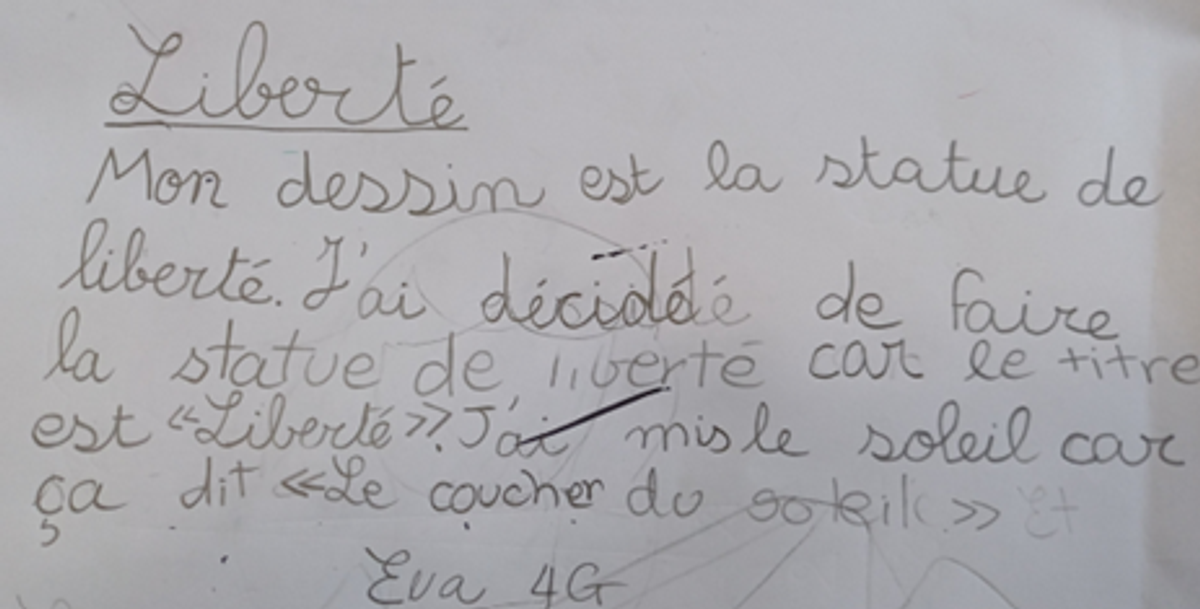 Liberté
Mon dessin est la statue de
liberté. J'ai décidé de faire
la statue de liberté car le titre
est «Liberté». J'ai mis le soleil car
ça dit «Le coucher du soleil» Et
Eva 4G